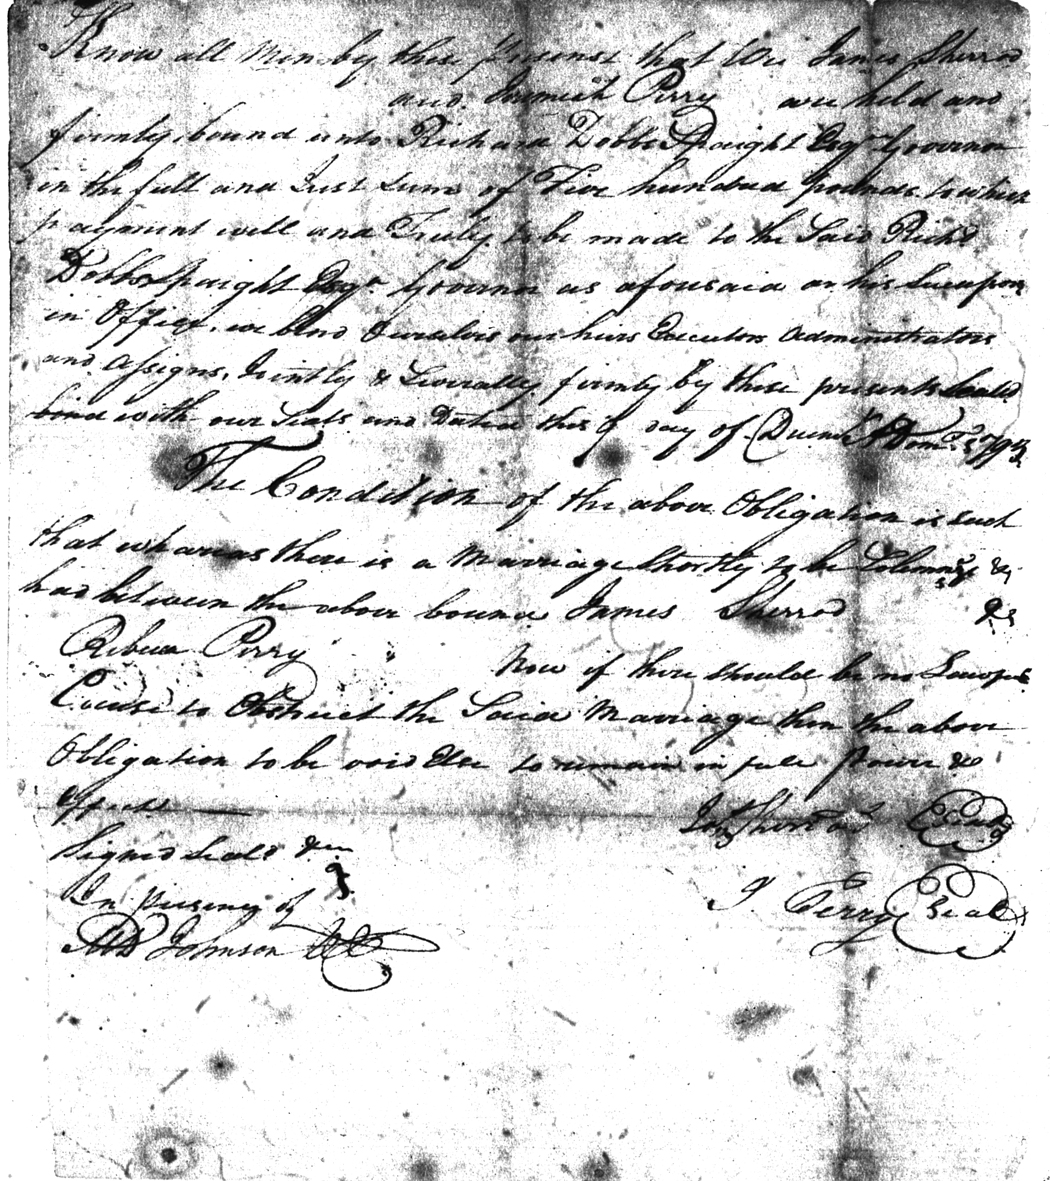 Know all Men by these presenst that We James Sherrod
and Jeremiah Perry are held and
firmly bound unto Richard Dobbs Spaight Esqr Governor
in the full and Just Sum of Five hundred pounds to which
payment well and Truly to be made to the Said Richd
Dobbs Spaight Esqr Governor as aforesaid or his Sucessors
in Office. we bind Ourselves our heirs Executors Administrators
and Assigns, Jointly & Severally, firmly by these presents Sealed
with our Seals and Dated this day of Decembr A Dom. 1793
The Condition of the above Obligation is Such
that whareas there is a Marriage Shortly to be Solemnzd &
had between the above bound James Sherrod &
Rebecca Perry Now if there should be no Lawfull
Cause to Obstruct the Said Marriage then the above
Obligation to be void Else to remain in full Power &
Effect
Sherrod Seal
Signed Seald &
In presency of
J Perry Seal
Johnson